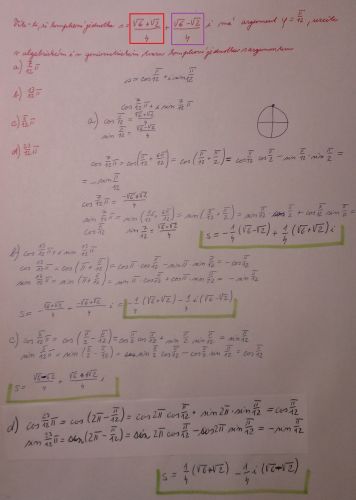 Víte-li, že komplexní jednotka s = (√6+√2)/4 + (√6-√2)/4 i má argument φ = π/12, určete
v algebraickém i v goniometrickém tvaru komplexní jednotku s argumentem
a) 7/12 π
b) 13/12 π
c) 5/12 π
d) 23/12 π
s = cos π/12 + i sin π/12
cos 7/12 π + i sin 7/12 π
a) cos π/12 = (√6+√2)/4
sin π/12 = (√6-√2)/4
cos 7/12 π = cos(π/12 + 6π/12) = cos(π/12 + π/2) = cos π/12 cos π/2 - sin π/12 sin π/2 =
= - sin π/12
cos 7/12 π = (-√6+√2)/4
sin 7/12 π = sin(π/12 + 6π/12) = sin(π/12 + π/2) = sin π/12 cos π/2 + cos π/12 sin π/2 =
cos π/12 sin 7/12 = (√6+√2)/4
s = -1/4 (√6-√2) + 1/4 (√6+√2) i
b) cos 13/12 π + i sin 13/12 π
cos 13/12 π = cos(π + π/12) = cos π cos π/12 - sin π sin π/12 = - cos π/12
sin 13/12 π = sin(π + π/12) = sin π cos π/12 + cos π sin π/12 = - sin π/12
s = - (√6+√2)/4 - (√6-√2)/4 i = -1/4 (√6+√2) - 1/4 i (√6-√2)
c) cos 5/12 π = cos(π/2 - π/12) = cos π/2 cos π/12 + sin π/2 sin π/12 = sin π/12
sin 5/12 π = sin(π/2 - π/12) = sin π/2 cos π/12 - cos π/2 sin π/12 = cos π/12
s = (√6-√2)/4 + (√6+√2)/4 i
d) cos 23/12 π = cos(2π - π/12) = cos 2π cos π/12 + sin 2π · sin π/12 = cos π/12
sin 23/12 π = sin(2π - π/12) = sin 2π cos π/12 - cos 2π sin π/12 = - sin π/12
s = 1/4 (√6+√2) - 1/4 i (√6-√2)